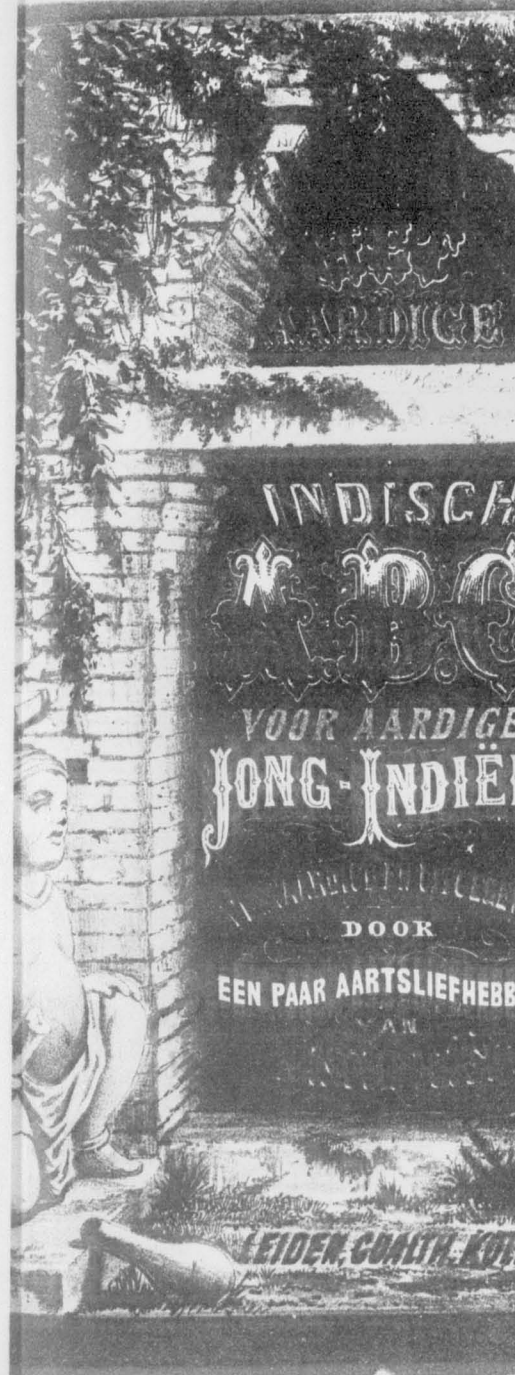 HET
AARDIGE
INDISCH
A.B.C
VOOR AARDIGE
JONG-INDIË
DOOR
EEN PAAR AARTSLIEFHEBB
VAN
LEIDEN, GUALTH. KOL